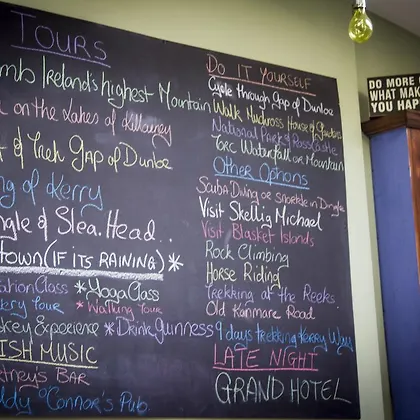 TOURS
Ireland's highest Mountain
on the Lakes of Killarney
& Trek Gap of Dunloe
of Kerry
& Slea Head..
town (IF ITS RAINING) *
Class * Yoga Class
Tour * Walking Tour
Experience * Drink Guinness
MUSIC
BAR
O'Connor's Pub
DO IT YOURSELF
Cycle through Gap of Dunloe
Walk Muckross House & Gardens
National Park & Ross Castle
Torc Waterfall or Mountain
Other Options
Scuba Diving or Snorkle in Dingle
Visit Skellig Michael
Visit Blasket Islands
Rock Climbing
Horse Riding
Trekking at the Reeks
Old Kenmare Road
9 days trekking Kerry Way
LATE NIGHT
GRAND HOTEL
DO MORE
WHAT
YOU